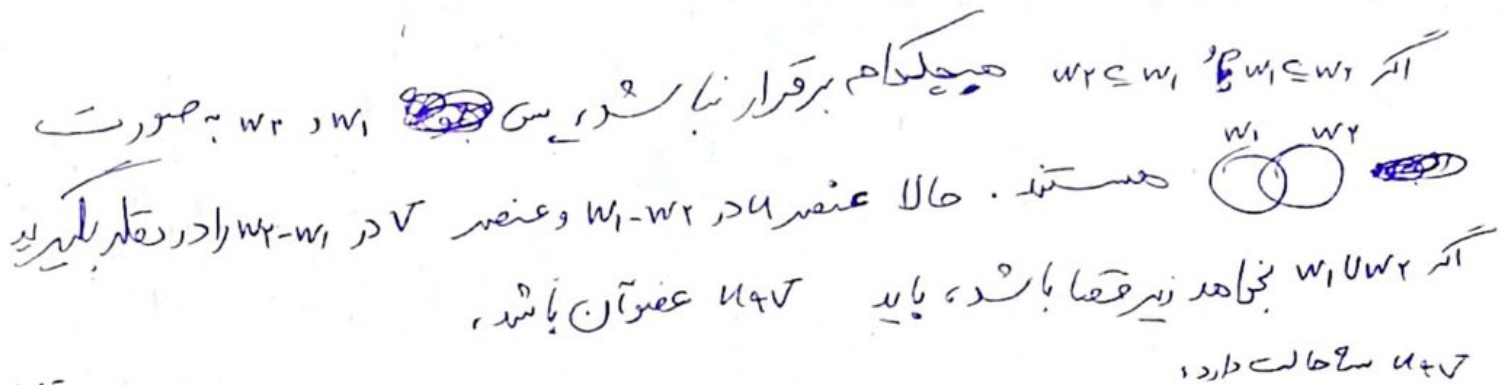 اگر W۱⊆W۲ یا W۲⊆W۱ هیچکدام برقرار نباشد، پس W۱ و W۲ به صورت
W۱ W۲
هستند. حالا عنصر u در W۱-W۲ و عنصر v در W۲-W۱ را در نظر بگیرید
اگر W۱∪W۲ بخواهد زیرفضا باشد، باید u+v عضو آن باشد،
u+v سه حالت دارد: